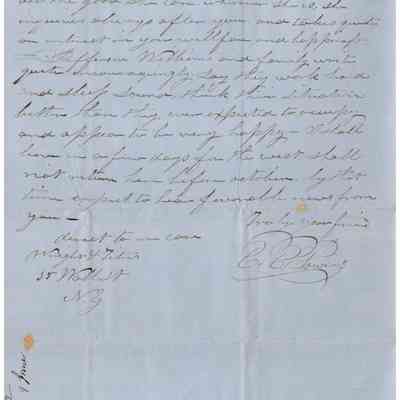 all the good she can where she is, she
inquires always after you and takes quite
an interest in your welfare and happiness
— Jefferson Williams and family write
quite encouragingly, say they work hard
and sleep sound think their situation
better than they ever expected to occupy
and appear to be very happy — I shall
leave in a few days for the west shall
not return here before october, by that
time expect to hear favorable news from
you —
Truly your friend
direct to me care
Wright
35 Wall St
N.Y.
June